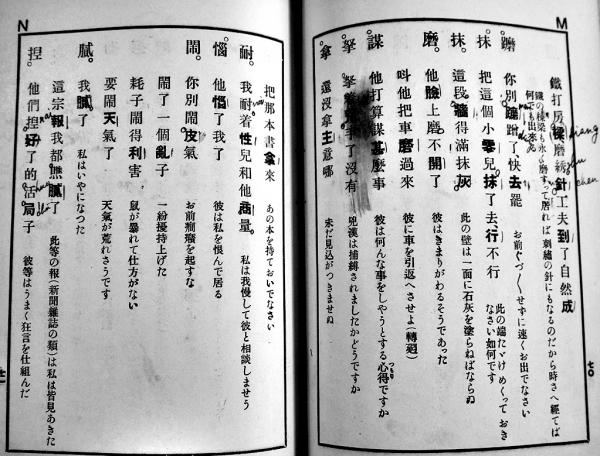 M
鐵打房樑磨綉針工夫到了自然成
鐵の棟梁も永く磨すって居れば刺繍の針にもなるのだから時さへ經てば
何でも出來る
蹭。
你別蹭蹭了快去罷
お前ぐづ〱せずに速くお出でなさい
抹。
把這個小零兒抹了去行不行
此の端たゞけめくっておき
なさい如何です
抹。
這段牆得滿抹灰
此の壁は一面に石灰を塗らねばならぬ
磨。
他臉上磨不開了
彼はきまりがわるそうであった
呌他把車磨過來
彼に車を引返へさせよ(轉廻)
謀
他打算謀甚麼事
彼は何んな事をしやうとする心得ですか
拏。
拏了沒有
兇漢は捕縛されましたかどうですか
拿
還沒拿主意哪
未だ見込がつきませぬ
七〇
N
把那本書拿來
あの本を持ておいでなさい
耐。
我耐着性兒和他商量。
私は我慢して彼と相談しませう
惱
他惱了我了
彼は私を恨んで居る
鬧。
你別鬧皮氣
お前癇癪を起すな
鬧了一個亂子
一紛擾持上げた
耗子鬧得利害
鼠が暴れて仕方がない
要鬧天氣了
天氣が荒れさうです
膩。
我膩了
私はいやになつた
這宗報我都瞧膩了
此等の報(新聞雜誌の類)は私は皆見あきた
捏。
他們捏好了的活局子
彼等はうまく狂言を仕組んだ
七一